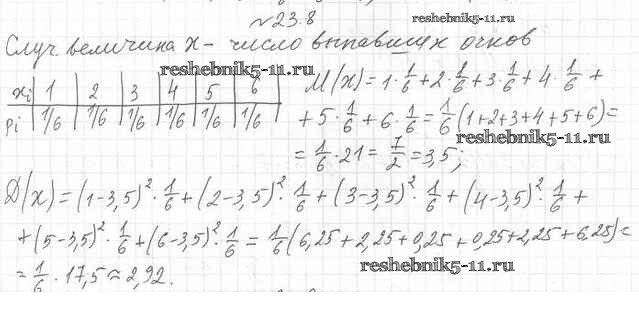 №23.8
reshebnik5-11.ru
Случ величина X - число выпавших очков
reshebnik5-11.ru
xi 1 2 3 4 5 6
pi 1/6 1/6 1/6 1/6 1/6 1/6
M(X)=1·1/6+2·1/6+3·1/6+4·1/6+
+5·1/6+6·1/6=1/6(1+2+3+4+5+6)=
reshebnik5-11.ru
=1/6·21=7/2=3,5;
D(X)=(1-3,5)²·1/6+(2-3,5)²·1/6+(3-3,5)²·1/6+(4-3,5)²·1/6+
+(5-3,5)²·1/6+(6-3,5)²·1/6=1/6(6,25+2,25+0,25+0,25+2,25+6,25)=
reshebnik5-11.ru
=1/6·17,5≈2,92.